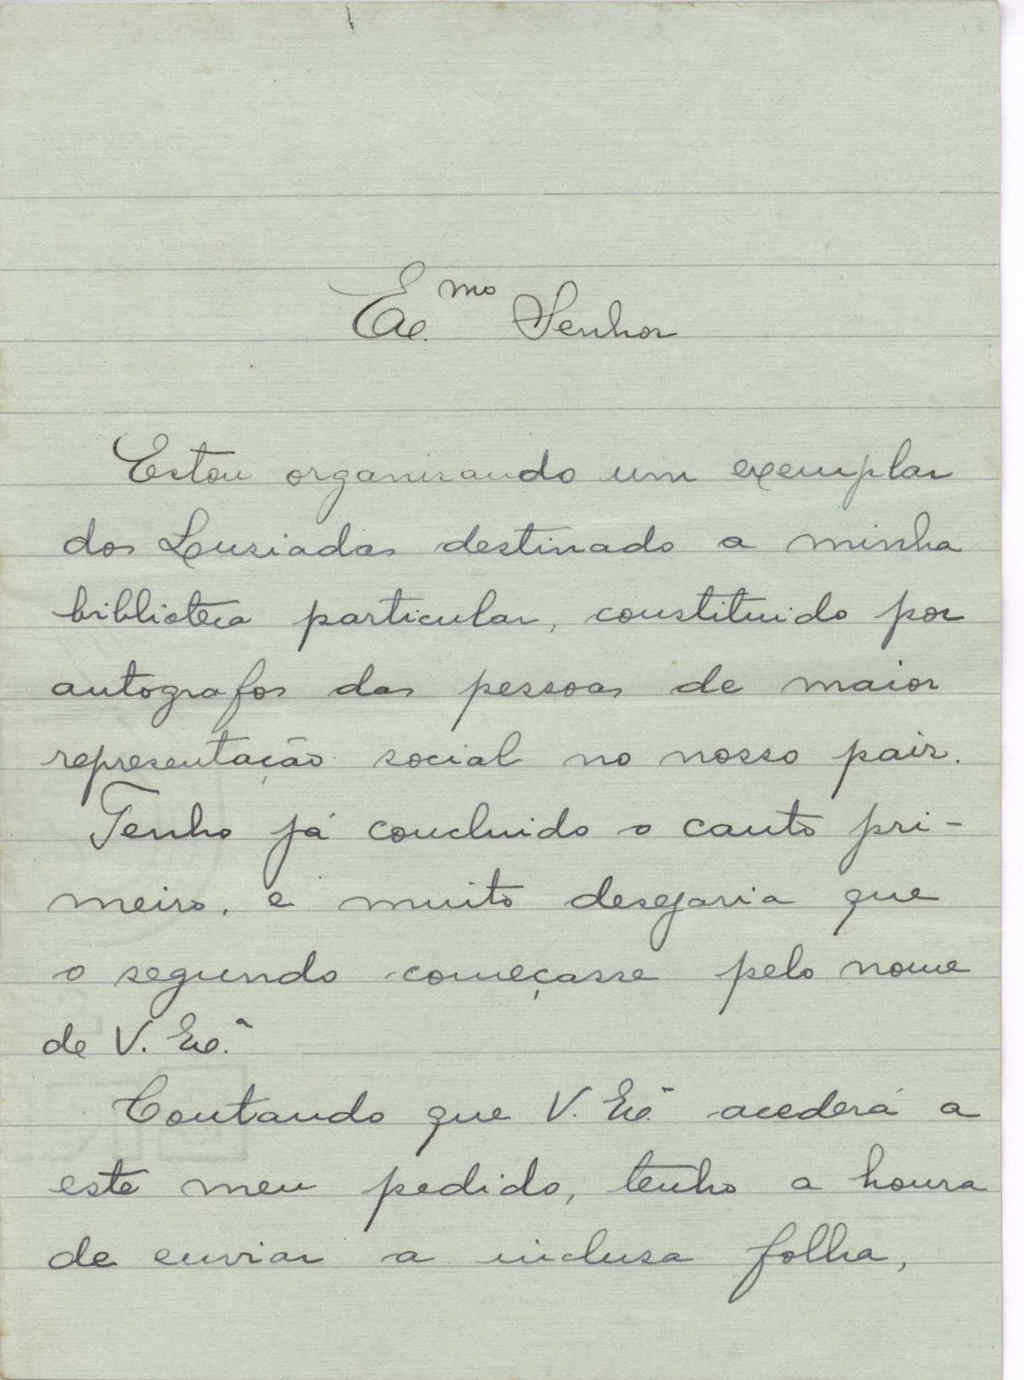 Ex.mo Senhor
Estou organisando um exemplar
dos Lusiadas destinado a minha
biblioteca particular, constituido por
autografos das pessoas de maior
representação social no nosso pais.
Tenho já concluido o canto pri-
meiro, e muito desejaria que
o segundo começasse pelo nome
de V. Ex.ª
Contando que V. Ex.ª acederá a
este meu pedido, tenho a honra
de enviar a inclusa folha,